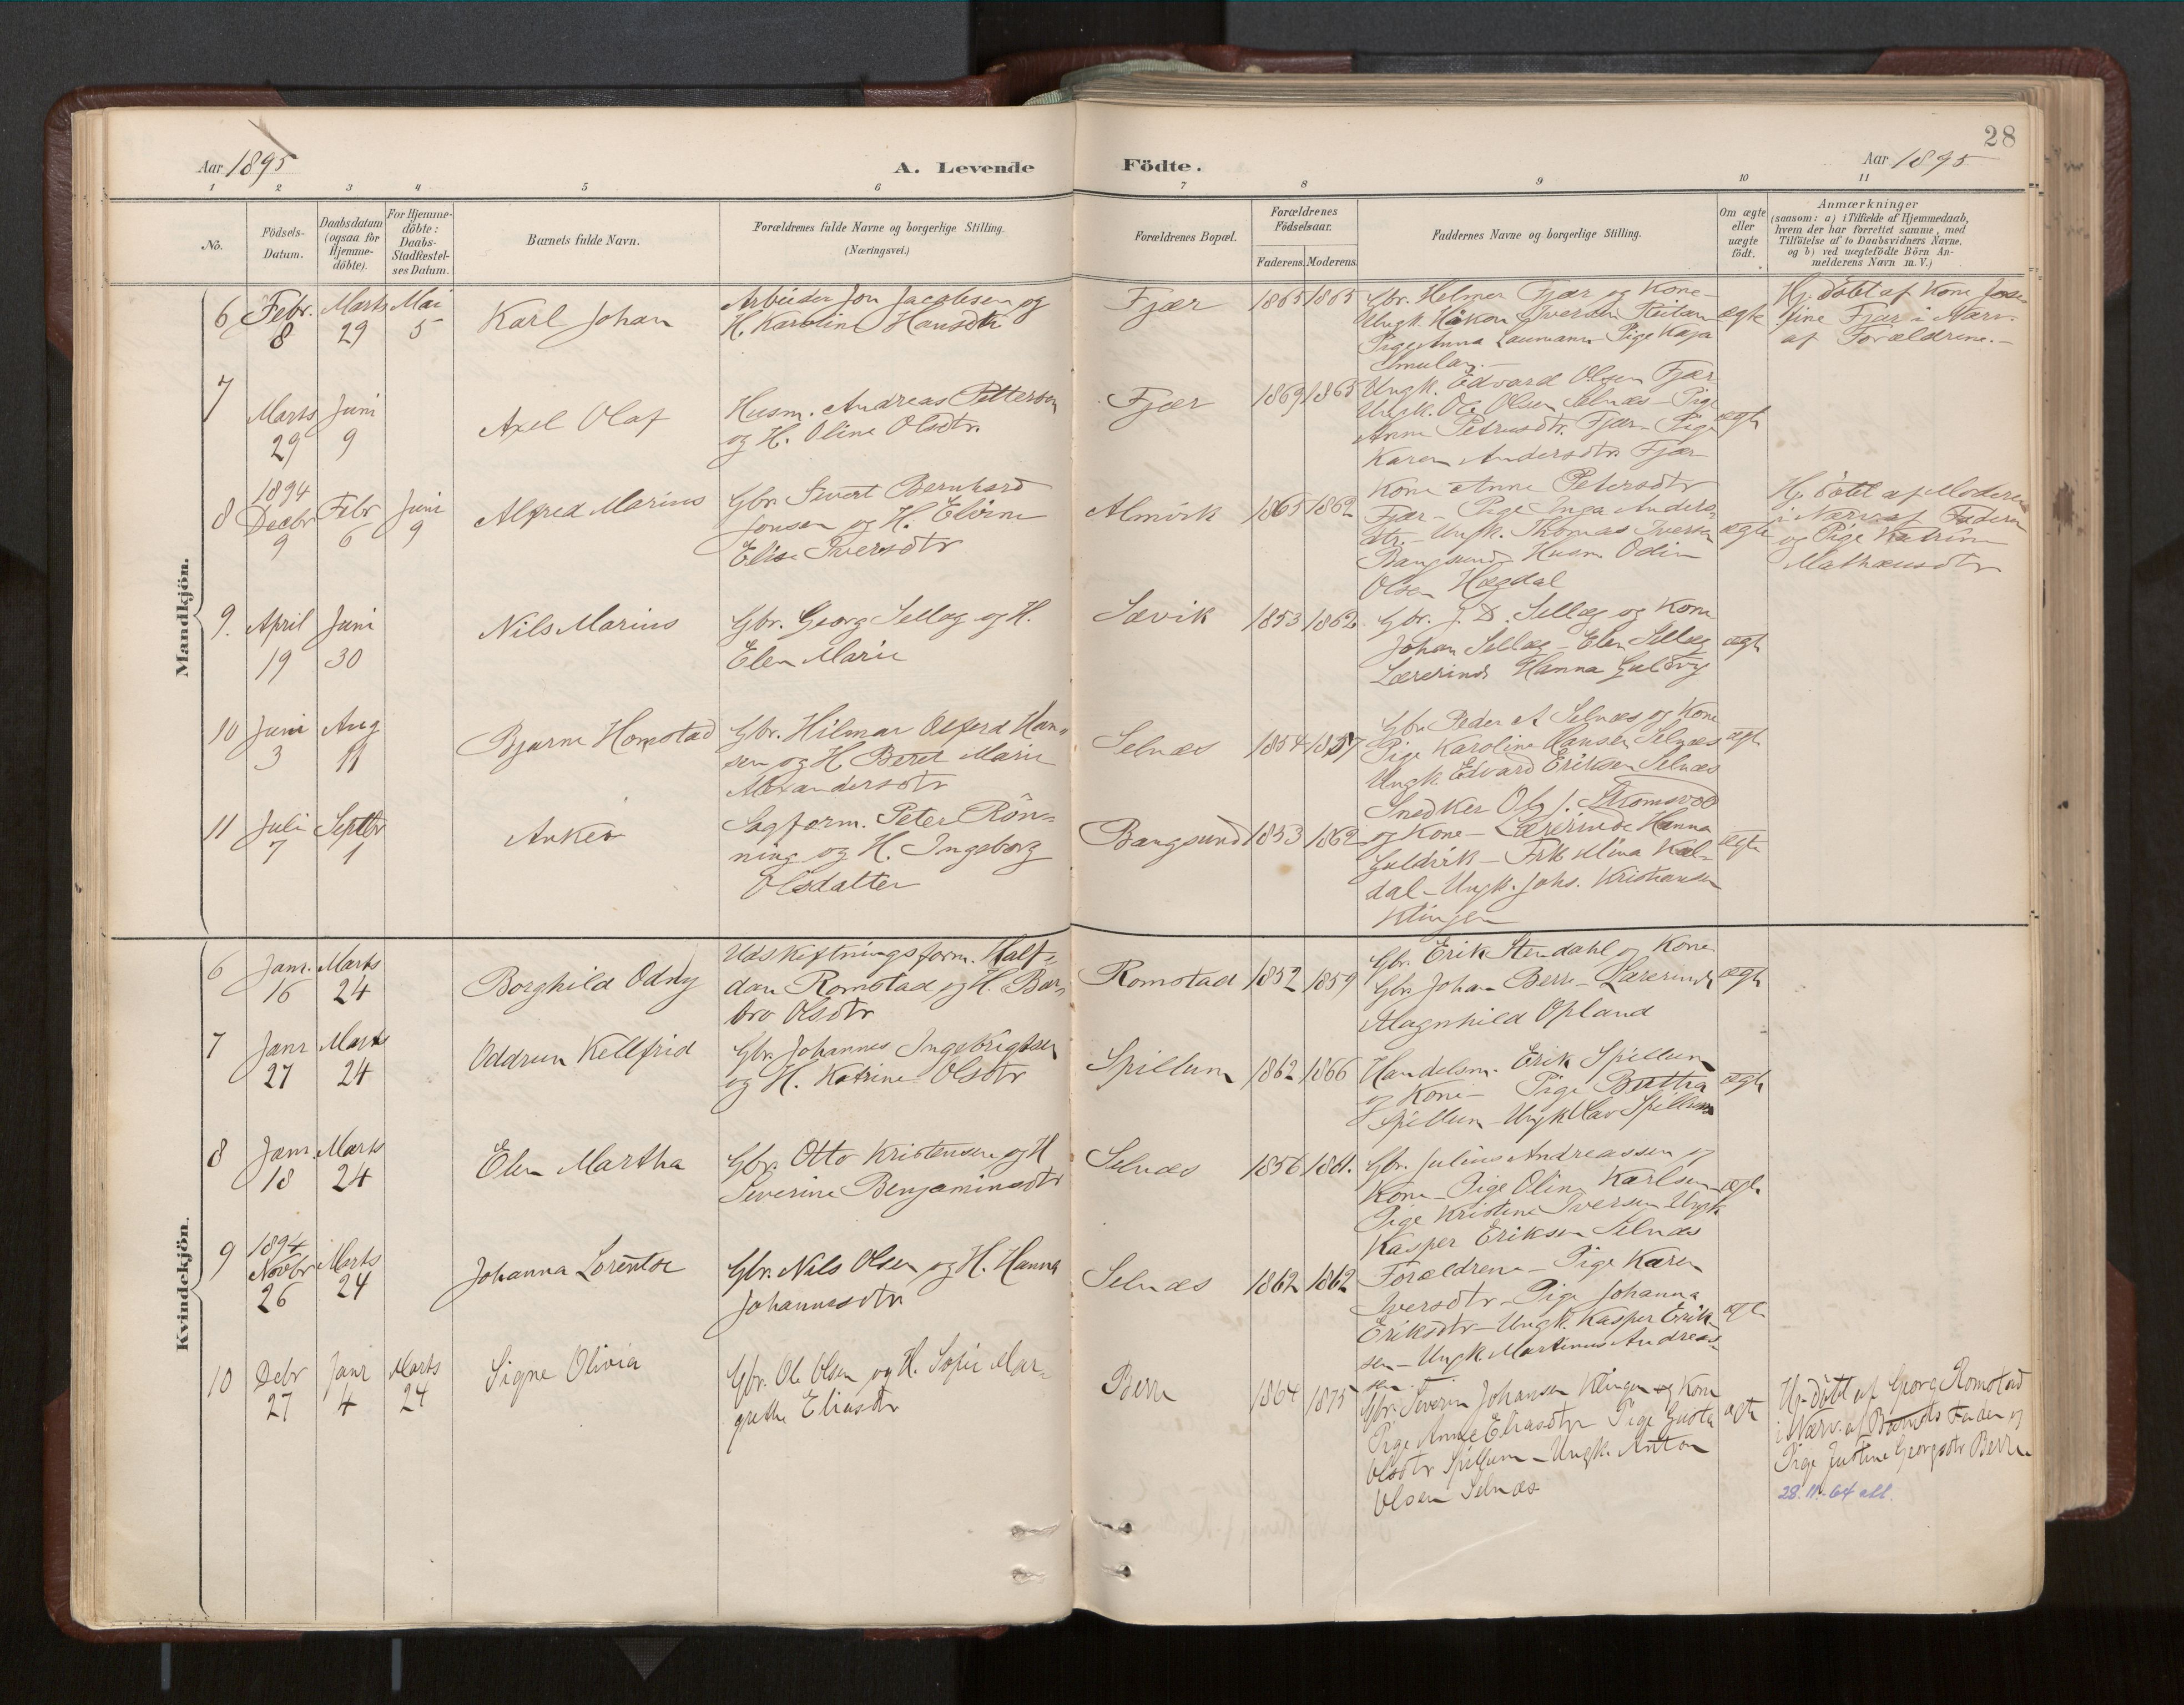 28
Aar 1895
A. Levende Födte.
Aar 1895
1 2 3 4 5 6 7 8 9 10 11
No.
Födsels-Datum.
Daabsdatum (ogsaa for Hjemme-döbte).
For Hjemme-döbte: Daabs-Stadfæstel-ses Datum.
Barnets fulde Navn.
Forældrenes fulde Navne og borgerlige Stilling.
(Næringsvei.)
Forældrenes Bopæl.
Forældrenes Födselsaar.
Faderens. Moderens.
Faddernes Navne og borgerlige Stilling.
Om ægte eller uægte født.
Anmærkninger
(saasom: a) i Tilfælde af Hjemmedaab,
hvem der har forrettet samme, med
Tilföielse af to Daabsvidners Navne,
og b) ved uægtefödte Börn An-
melderens Navn m. V.)
Mandkjön.
6 Febr. 8 Marts 29 Mai 5
Karl Johan
Arbeider Jon Jacobsen og
H. Karoline Hansdtr
Fjær 1865 1865
Gbr. Helmer Fjær og Kone-
Ungk. Håkon Iversen
Pige Anna Laumann Pige Kaja
ægte
Hj. döbt af Kone Jose-
fine Fjær i Nærv.
af Forældrene.-
7 Marts 29 Juni 9
Axel Olaf
Husm. Andreas Pettersen
og H. Oline Olsdtr.
Fjær 1869 1865
Ungk. Edvard Olsen Fjær
Ungk. Ole Olsen Selnæs - Pige
Anne Petrusdtr. Fjær - Pige
Karen Andersdtr. Fjær
ægte
8 1894 Decbr 9 Febr 6 Juni 9
Alfred Marius
Gbr. Sivert Bernhard
Jonsen og H. Elvine
Elise Iversdtr
Almvik 1865 1862
Kone Anne Petersdtr
Fjær - Pige Inga Anders-
dtr. - Ungk. Thomas Iversen
Bangsund Husm. Odin
Olsen Hægdal
ægte
Hj. döbt af Moderen
i Nærv af Faderen
og Pige Katrine
Mathæusdtr
9. April 19 Juni 30
Nils Marius
Gbr. Georg Sellæg og H.
Elen Marie
Sævik 1853 1862
Gbr. J. D. Sellæg og Kone
Johan Sellæg - Elen Sellæg
Lærerinde Hanna Guldvig
ægte
10 Juni 3 Aug 11
Bjarne Homstad
Gbr. Hilmar Olferd Han-
sen og H. Beret Marie
Alexandersdtr
Selnæs 1854 1857
Gbr. Peder A Selnæs og Kone
Pige Karoline Hansen Selnæs
Ungk Edvard Eriksen Selnæs
ægte
11 Juli 7 Septbr 1
Anker
Sagform. Peter Rön-
ning og H. Ingeborg
Olsdatter
Bangsund 1853 1862
Snedker Ole J. Strömsvold
og Kone - Lærerinde Hanna
Guldvik - Frk Mina Kal-
dal - Ungk. Johs. Kristiansen
Klingen
ægte
Kvindekjön.
6 Jan. 16 Marts 24
Borghild Odny
Udskiftningsform. Half-
dan Romstad og H. Bar-
bro Olsdtr
Romstad 1852 1859
Gbr. Erik Stendahl og Kone
Gbr. Johan Berre - Lærerinde
Magnhild Opland
ægte
7 Janr 27 Marts 24
Oddrun Kellfrid
Gbr. Johannes Ingebrigtsen
og H. Katrine Olsdtr
Spillum 1862 1866
Handelsm. Erik Spillum
og Kone - Pige Bertha
Spillum - Ungk Olav Spillum
ægte
8 Jan. 18 Marts 24
Elen Martha
Gbr. Otto Kristensen og H
Severine Benjaminsdtr
Selnæs 1856 1861.
Gbr. Julius Andreassen og
Kone - Pige Oline Karlsen
Pige Kristine Iversen - Ungk
Kasper Eriksen Selnæs
ægte
9 1894 Novbr 26 Marts 24
Johanna Lorentse
Gbr. Nils Olsen og H. Hanna
Johannesdtr
Selnæs 1862 1862
Forældrene - Pige Karen
Iversdtr - Pige Johanna
Eriksdtr - Ungk. Kasper Erik-
sen - Ungk. Martinus Andreas-
sen
ægte
10 Decbr 27 Janr 4 Marts 24
Signe Olivia
Gbr. Ole Olsen og H. Sofie Mar-
grethe Eliasdtr
Berre 1864 1875
Gbr. Severin Johansen Klingen og Kone
Pige Anne Eliasdtr Pige Gusta
Olsdtr Spillum - Ungk. Anton
Olsen Selnæs
ægte
Hj. döbt af Georg Romstad
i Nærv. af Barnets Fader og
Pige Justine Georgsdtr Berre
28.11.64